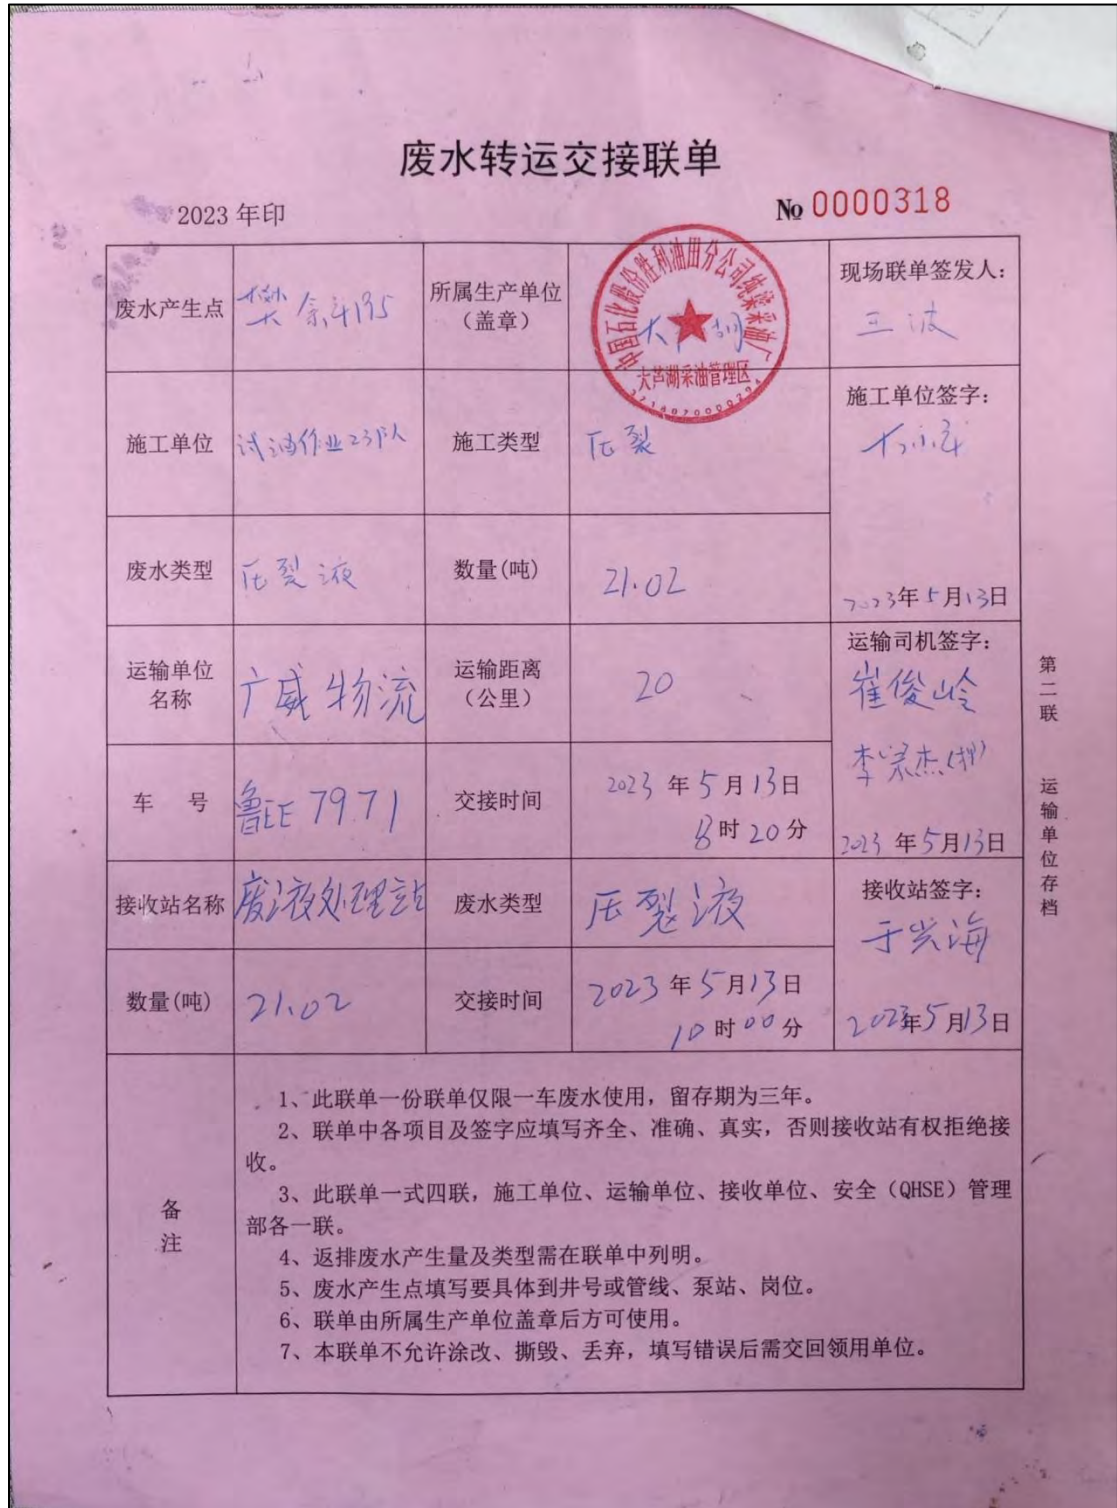 废水转运交接联单
2023 年印
№ 0000318
废水产生点
樊
195
所属生产单位
（盖章）
大芦湖
中国石化股份胜利油田分公司纯梁采油厂
大芦湖采油管理区
现场联单签发人：
王波
施工单位
试油作业23队
施工类型
压裂
施工单位签字：
废水类型
压裂液
数量(吨)
21.02
2023年5月13日
运输单位
名称
广威物流
运输距离
（公里）
20
运输司机签字：
崔俊岭
李
杰(押)
车 号
鲁EE7971
交接时间
2023年5月13日
8时20分
2023年5月13日
接收站名称
废液处理站
废水类型
压裂液
接收站签字：
于兴海
数量(吨)
21.02
交接时间
2023年5月13日
10时00分
2023年5月13日
备
注
1、此联单一份联单仅限一车废水使用，留存期为三年。
2、联单中各项目及签字应填写齐全、准确、真实，否则接收站有权拒绝接
收。
3、此联单一式四联，施工单位、运输单位、接收单位、安全（QHSE）管理
部各一联。
4、返排废水产生量及类型需在联单中列明。
5、废水产生点填写要具体到井号或管线、泵站、岗位。
6、联单由所属生产单位盖章后方可使用。
7、本联单不允许涂改、撕毁、丢弃，填写错误后需交回领用单位。
第二联 运输单位存档